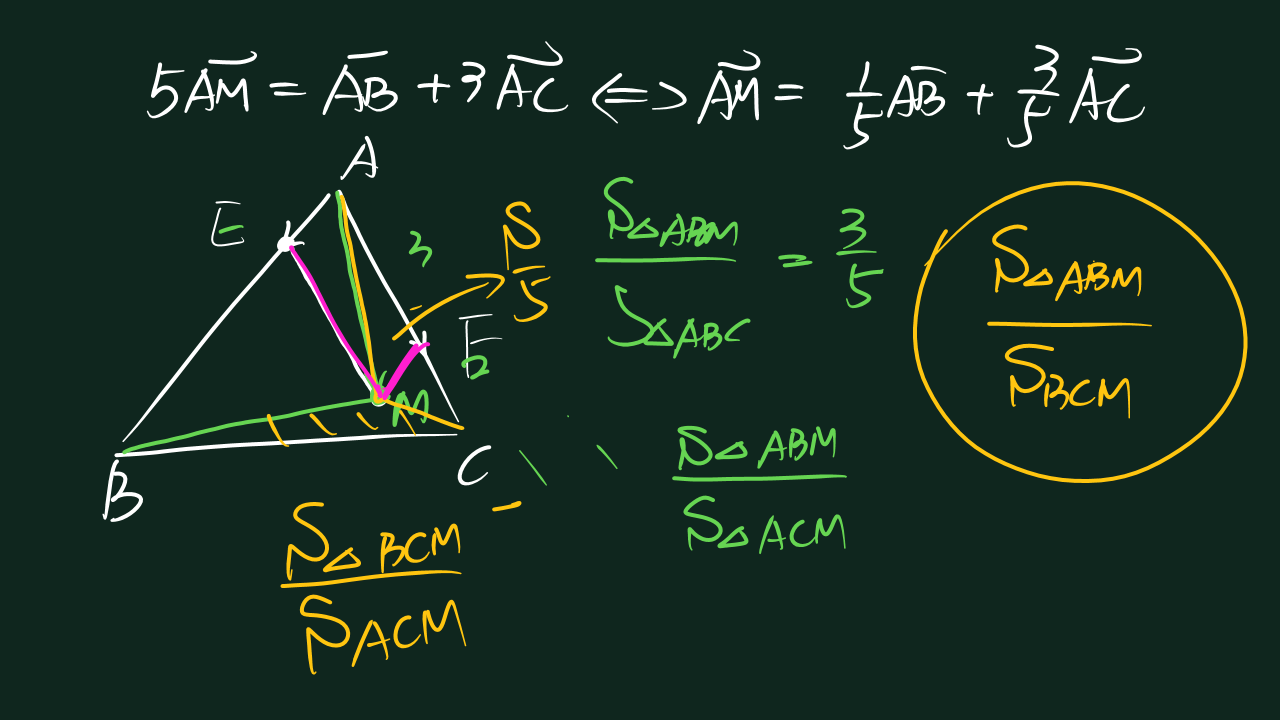 5AM = AB + 3AC <=> AM = 1/5 AB + 3/5 AC
A
E
3
S/5
S△ABM / S△ABC = 3/5
S△ABM / SBCM
F
2
M
B
C
S△ABM / S△ACM
S△BCM / SACM